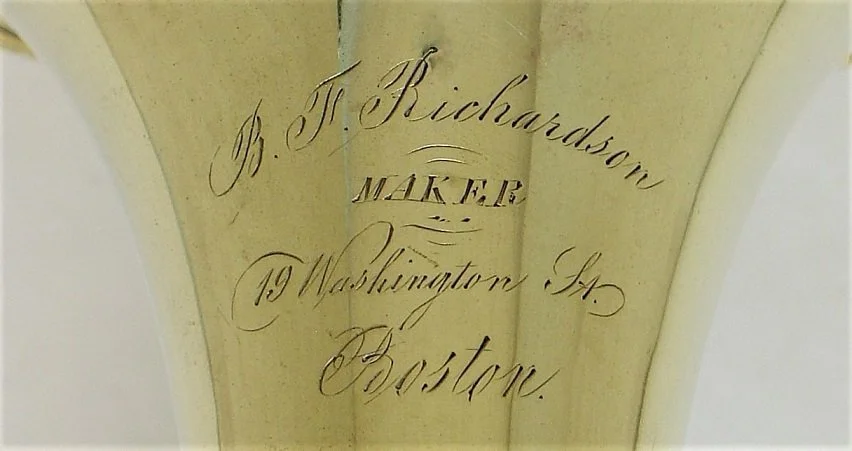 B. F. Richardson
MAKER
19 Washington St.
Boston.